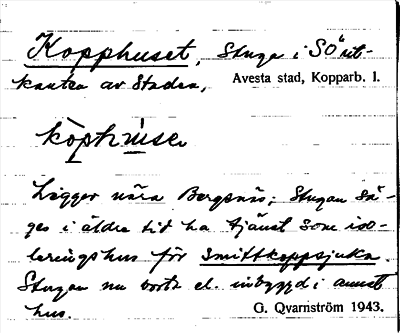 Kopphuset, Stuga i SÖ ut-
kanten av Staden, Avesta stad, Kopparb. l.
kòphúse
Ligger nära Bergsnäs; Stugan sä-
ges i äldre tid ha tjänst som iso-
leringshus för smittkoppsjuka.
Stugan nu borta el. inbyggd i annat
hus. G. Qvarnström 1943.